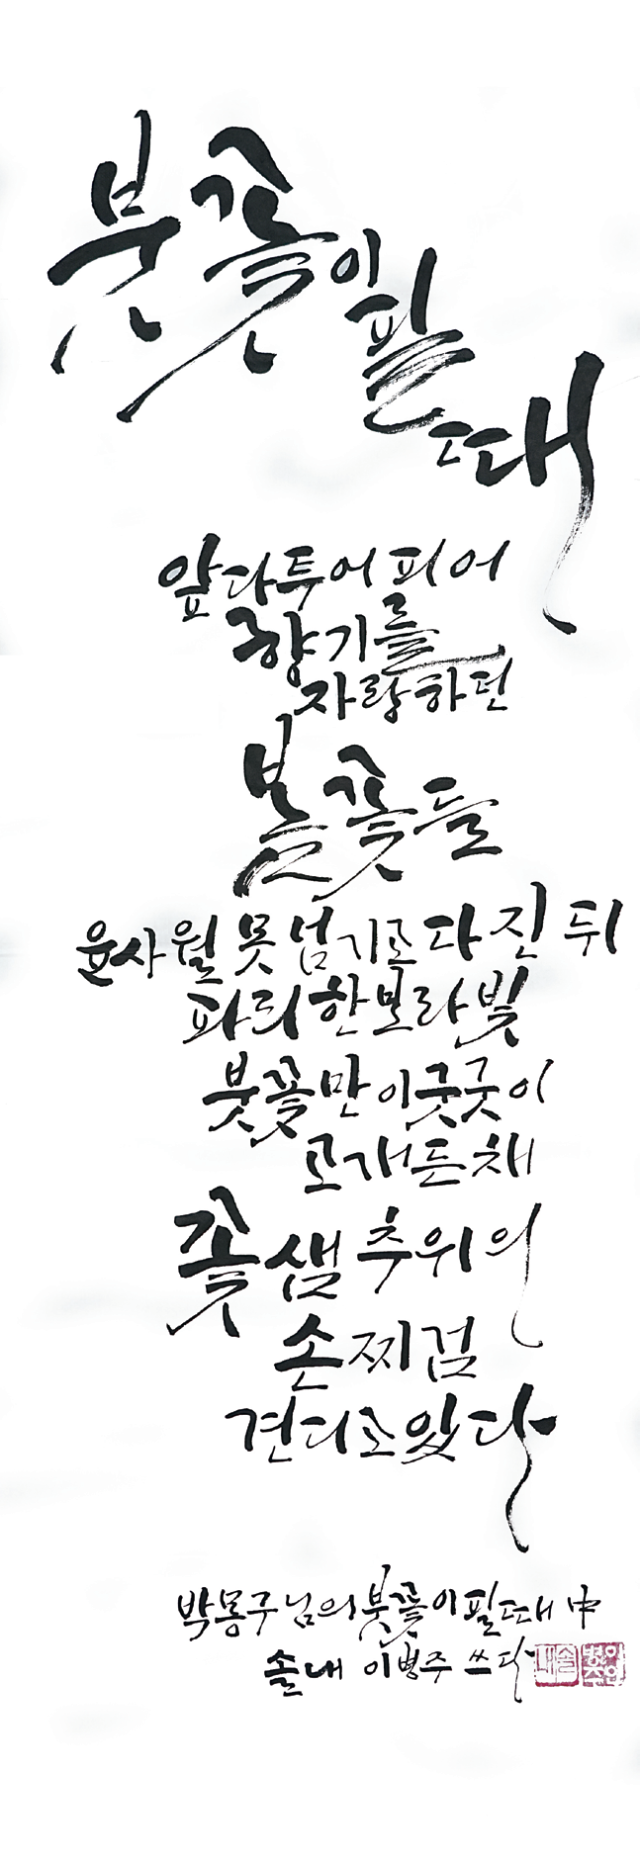 붓꽃이 필 때
앞다투어 피어
향기를
자랑하던
봄꽃들
윤사월 못 넘기고 다 진 뒤
파리한 보라빛
붓꽃만이 굿굿이
고개 든 채
꽃샘추위의
손찌검
견디고 있다
박몽구님의 붓꽃이 필 때 中
솔내 이병주 쓰다